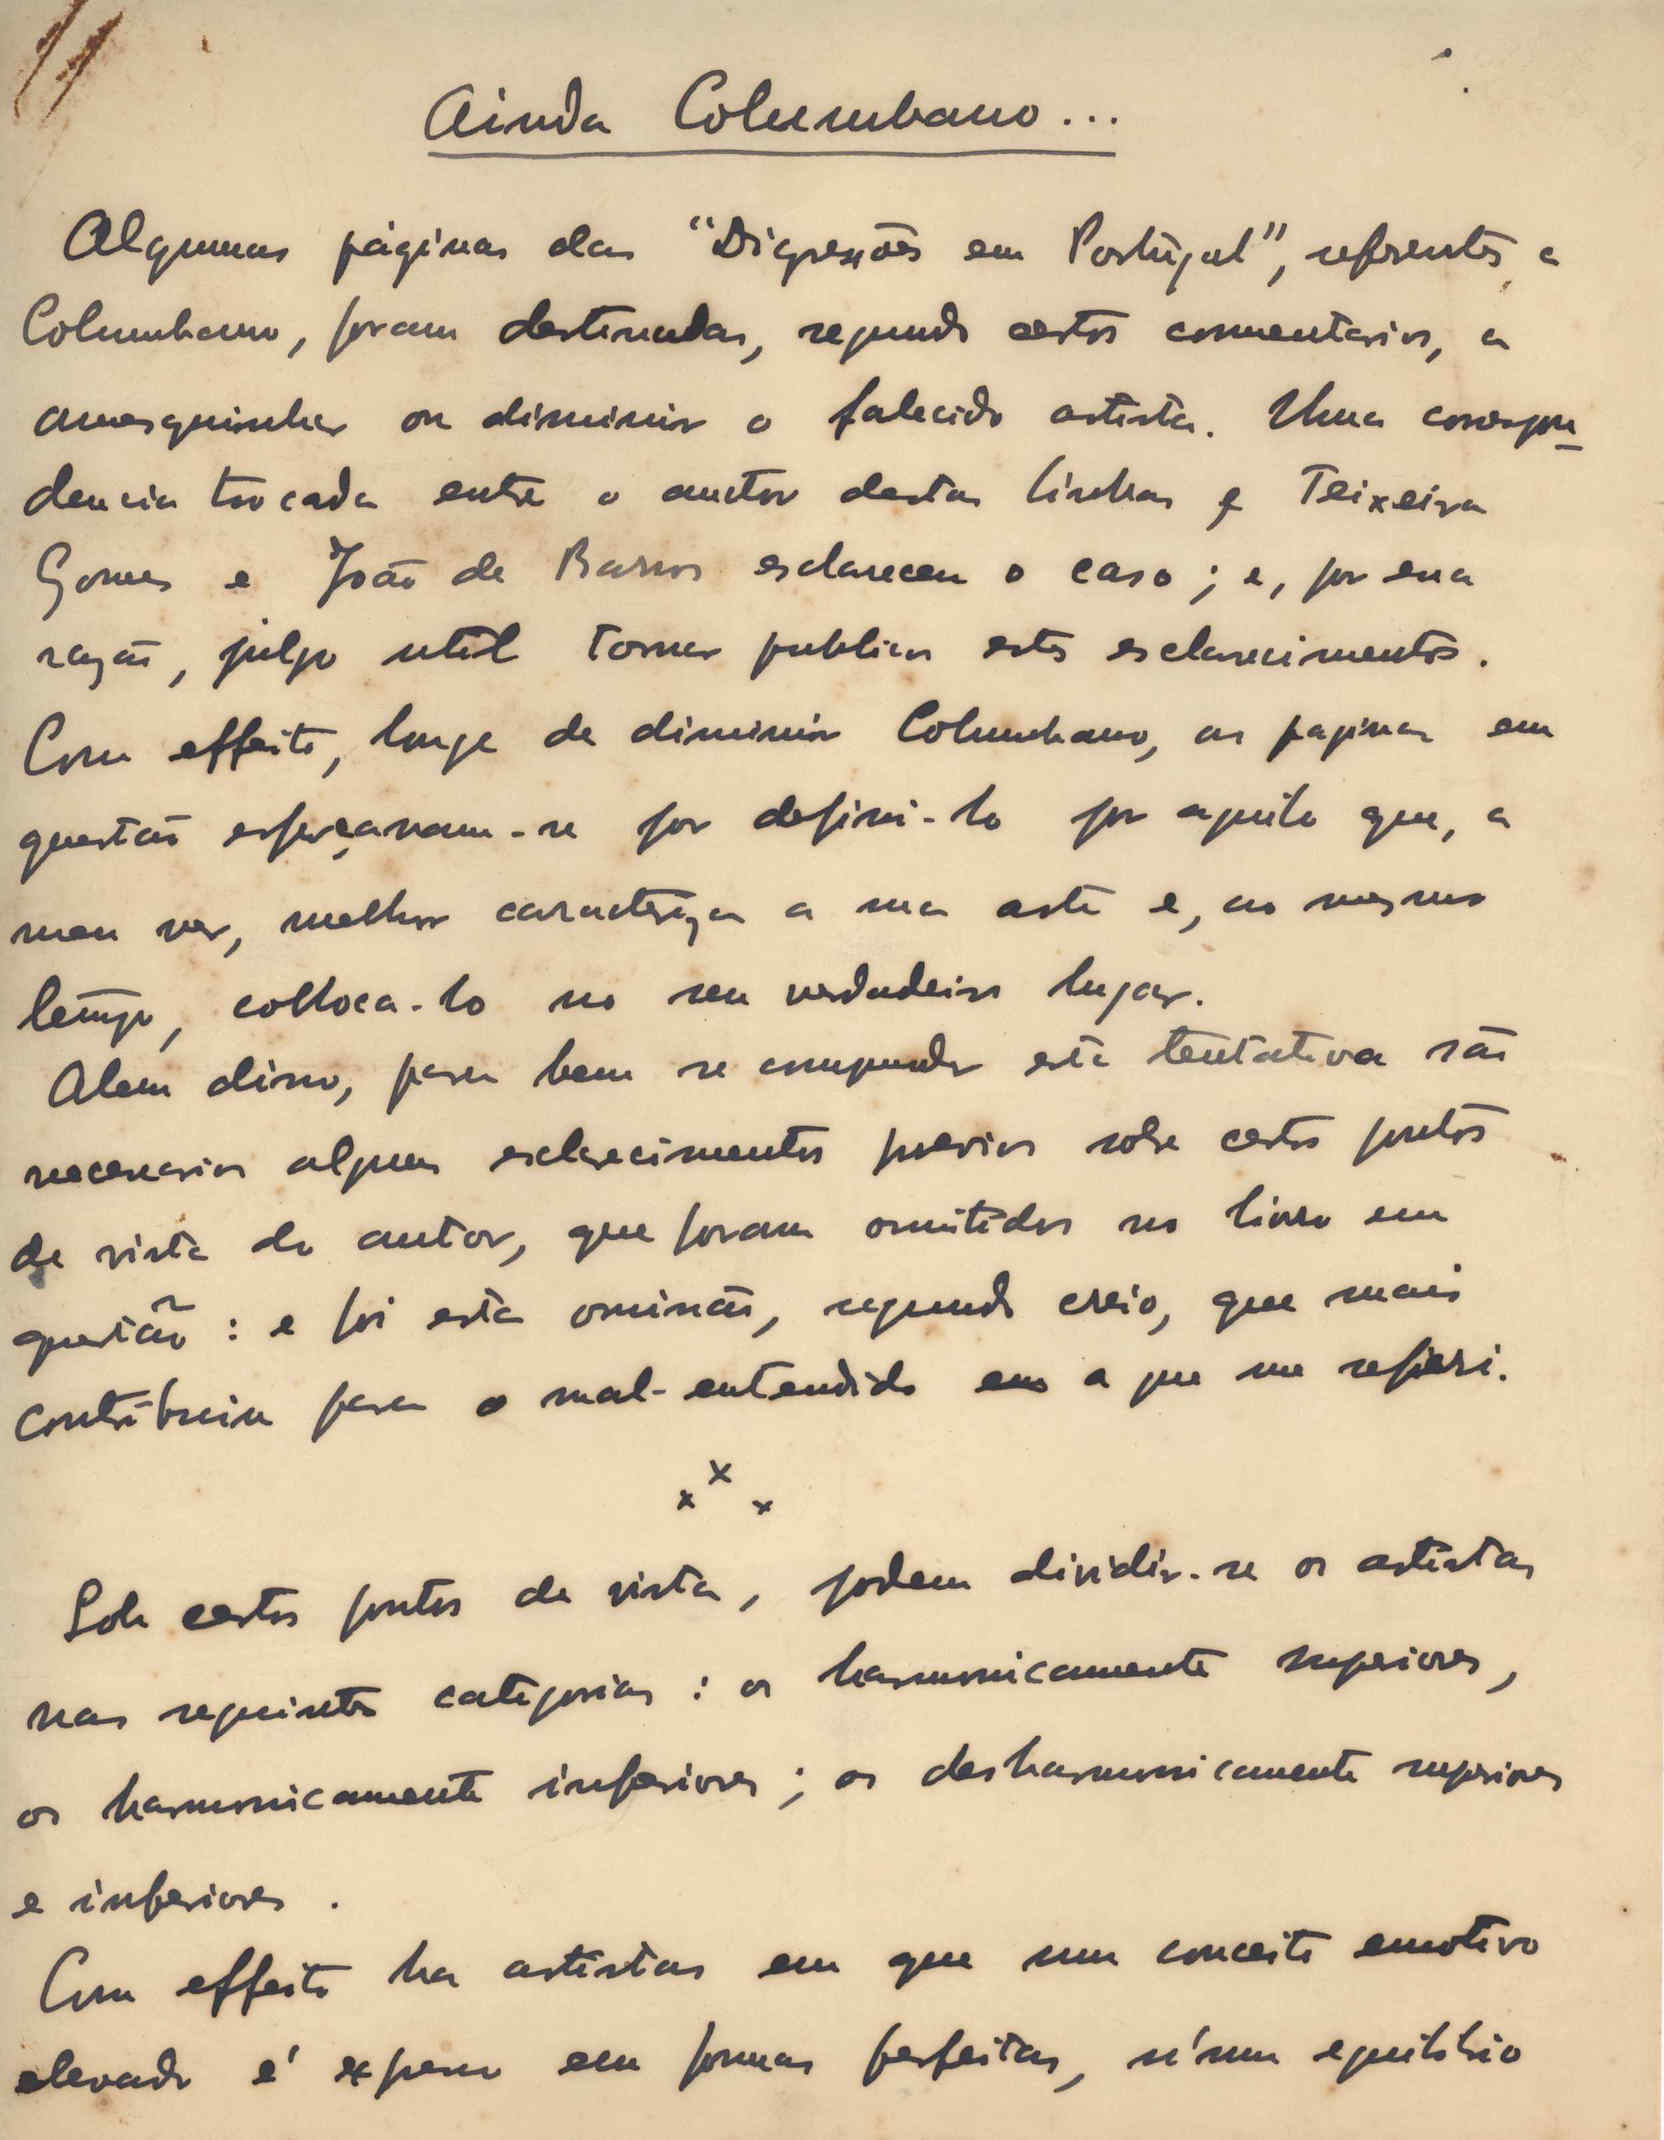 Ainda Columbano...
Algumas páginas das "Digressões em Portugal", referentes a
Columbano, foram destinadas, segundo certos commentarios, a
amesquinhar ou diminuir o falecido artista. Uma correspon-
dencia trocada entre o auctor destas linhas e Teixeira
Gomes e João de Barros esclareceu o caso; e, por essa
razão, julgo util tornar publicos estes esclarecimentos.
Com effeito, longe de diminuir Columbano, as paginas em
questão esforçavam-se por defini-lo por aquilo que, a
meu ver, melhor caracteriza a sua arte e, ao mesmo
tempo, colloca-lo no seu verdadeiro lugar.
Alem disso, para bem se comprender esta tentativa são
necessarios alguns esclarecimentos previos sobre certos pontos
de vista do autor, que foram omitidos no livro em
questão: e foi esta omissão, segundo creio, que mais
contribuiu para o mal-entendido a que me referi.
x x x
Sob certos pontos de vista, podem dividir-se os artistas
nas seguintes categorias: os harmonicamente superiores,
os harmonicamente inferiores; os desharmonicamente superiores
e inferiores.
Com effeito ha artistas em que um conceito emotivo
elevado é expresso em formas perfeitas, n'um equilibrio